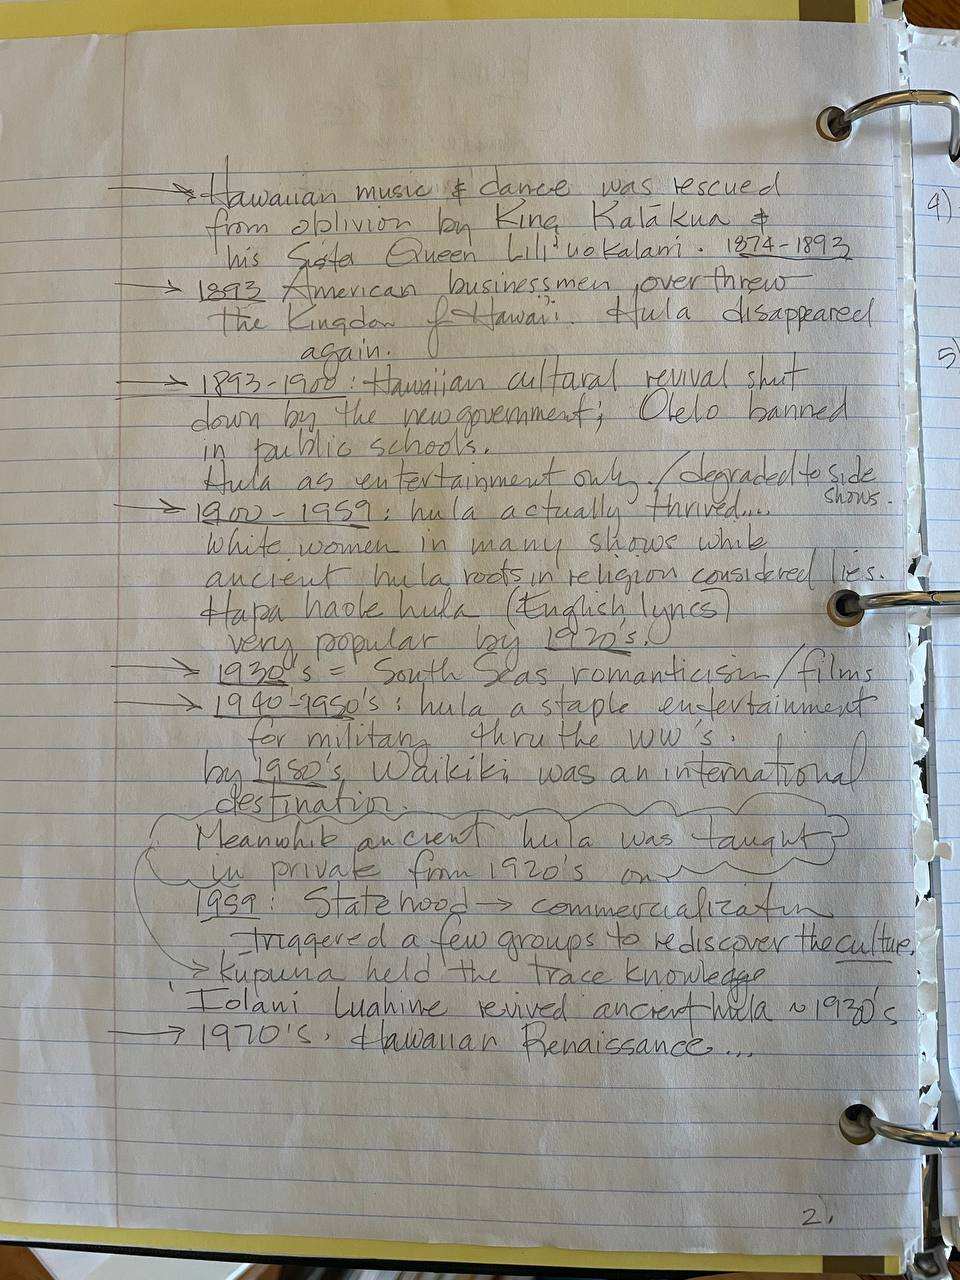 → Hawaiian music & dance was rescued
from oblivion by King Kalākua &
his Sister Queen Lili'uokalani. 1874-1893
→ 1893 American businessmen overthrew
the Kingdom of Hawai'i. Hula disappeared
again.
→ 1893-1900: Hawaiian cultural revival shut
down by the new government; Olelo banned
in public schools.
Hula as entertainment only. / degraded to side
shows.
→ 1900-1959: hula actually thrived....
White women in many shows while
ancient hula roots in religion considered lies.
Hapa haole hula (English lyrics)
very popular by 1920's.
→ 1930's = South Seas romanticism / films
→ 1940-1950's: hula a staple entertainment
for military thru the WW's.
by 1950's Waikiki was an international
destination.
Meanwhile ancient hula was taught
in private from 1920's on
1959: Statehood → commercialization
Triggered a few groups to rediscover the culture.
→ Kupuna held the trace knowledge
'Iolani Luahine revived ancient hula ~1930's
→ 1970's. Hawaiian Renaissance...
2.
4)
5)